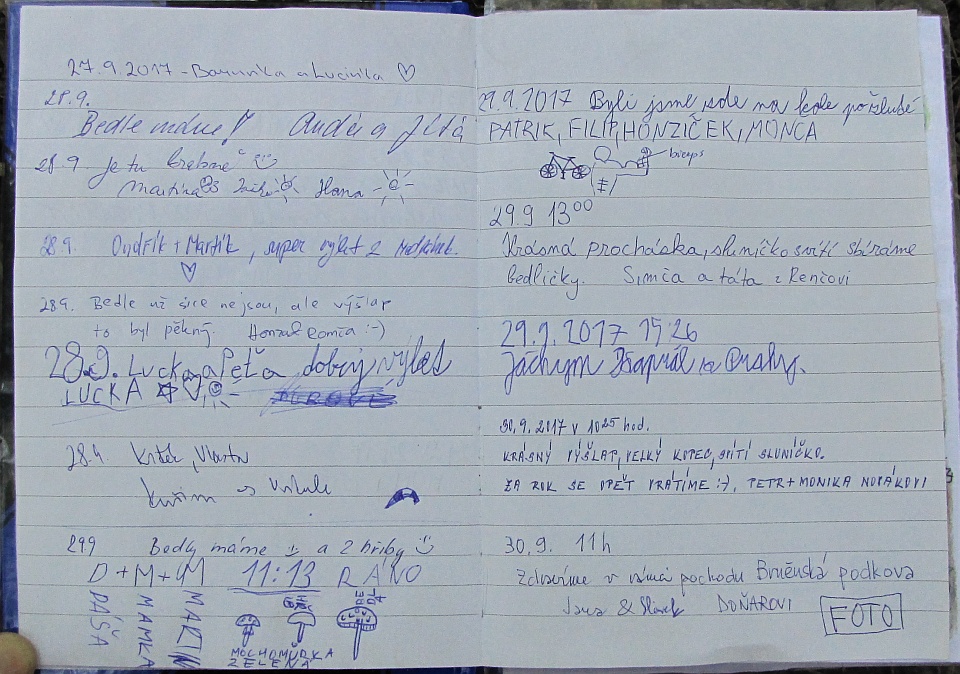 27.9.2017 - Barunka a Lucinka ♡
28.9.
Bedle máme! Anděl a Jitka
28.9 Je tu krásně
Martina Hana
28.9. Ondřík + Martík, super výlet z
28.9. Bedle už sice nejsou, ale výšlap
to byl pěkný. Honza :-)
28.9. Lucka a Péťa dobrý výlet
LUCKA
28.9. Vlasta
299 Bedly máme a 2 hřiby
D + M + M 11:13 RÁNO
DÁŠA
MAMKA
MARTIN
HŘIB
BEDLA
MOCHOMŮRKA
ZELENÁ
29.9.2017 Byli jsme zde na kole
PATRIK, FILIP, HONZÍČEK, MONCA
biceps
29.9 13⁰⁰
Krásná procháska, sluníčko svítí sbíráme
bedličky. Simča a táta
29.9.2017 15:26
Jáchym z Prahy.
30.9.2017 v 10²⁵ hod.
KRÁSNÝ VÝŠLAP, VELKÝ KOPEC, SVÍTÍ SLUNÍČKO.
ZA ROK SE OPĚT VRÁTÍME :-), PETR + MONIKA NOVÁKOVI
30.9. 11h
Zdravíme v rámci pochodu Brněnská podkova
Jana & Slávek DOŇAROVI
FOTO